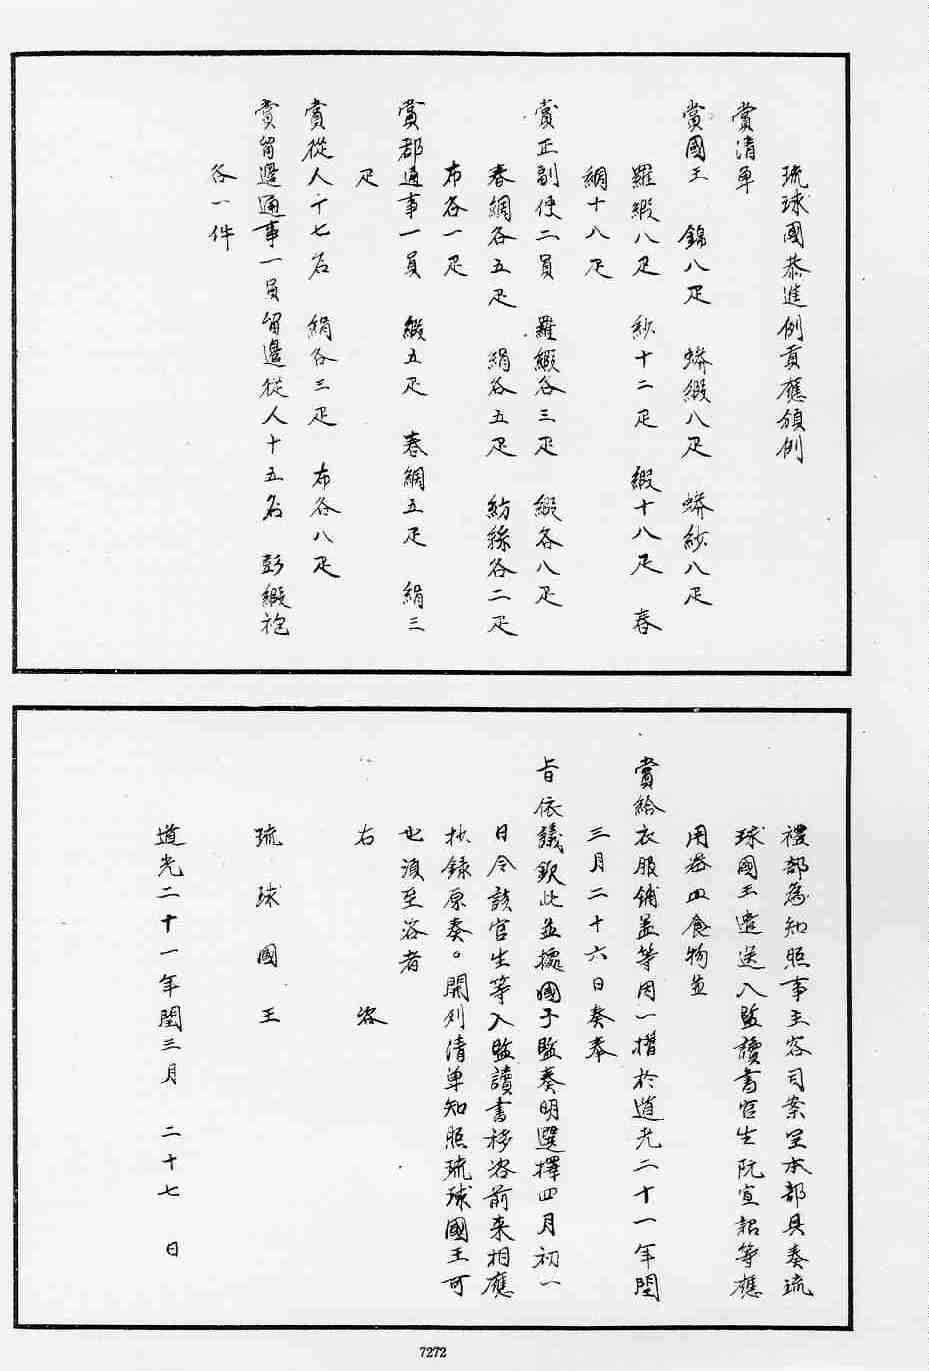 琉球國恭進例貢應頒例
賞清單
賞國王　錦八疋　蟒緞八疋　蟒紗八疋
羅緞八疋　紗十二疋　緞十八疋　春
綢十八疋
賞正副使二員　羅緞各三疋　緞各八疋
春綢各五疋　絹各五疋　紡絲各二疋
布各一疋
賞郡通事一員　緞五疋　春綢五疋　絹三
疋
賞從人十七名　絹各三疋　布各八疋
賞留邊通事一員留邊從人十五名　彭緞袍
各一件
禮部為知照事主客司案呈本部具奏琉
球國王遣送入監讀書官生阮宣詔等應
用器皿食物並
賞給衣服鋪蓋等因一摺於道光二十一年閏
三月二十六日奏奉
旨依議欽此並據國子監奏明選擇四月初一
日令該官生等入監讀書移咨前來相應
抄錄原奏。開列清單知照琉球國王可
也須至咨者
右咨
琉球國王
道光二十一年閏三月　二十七　日
7272